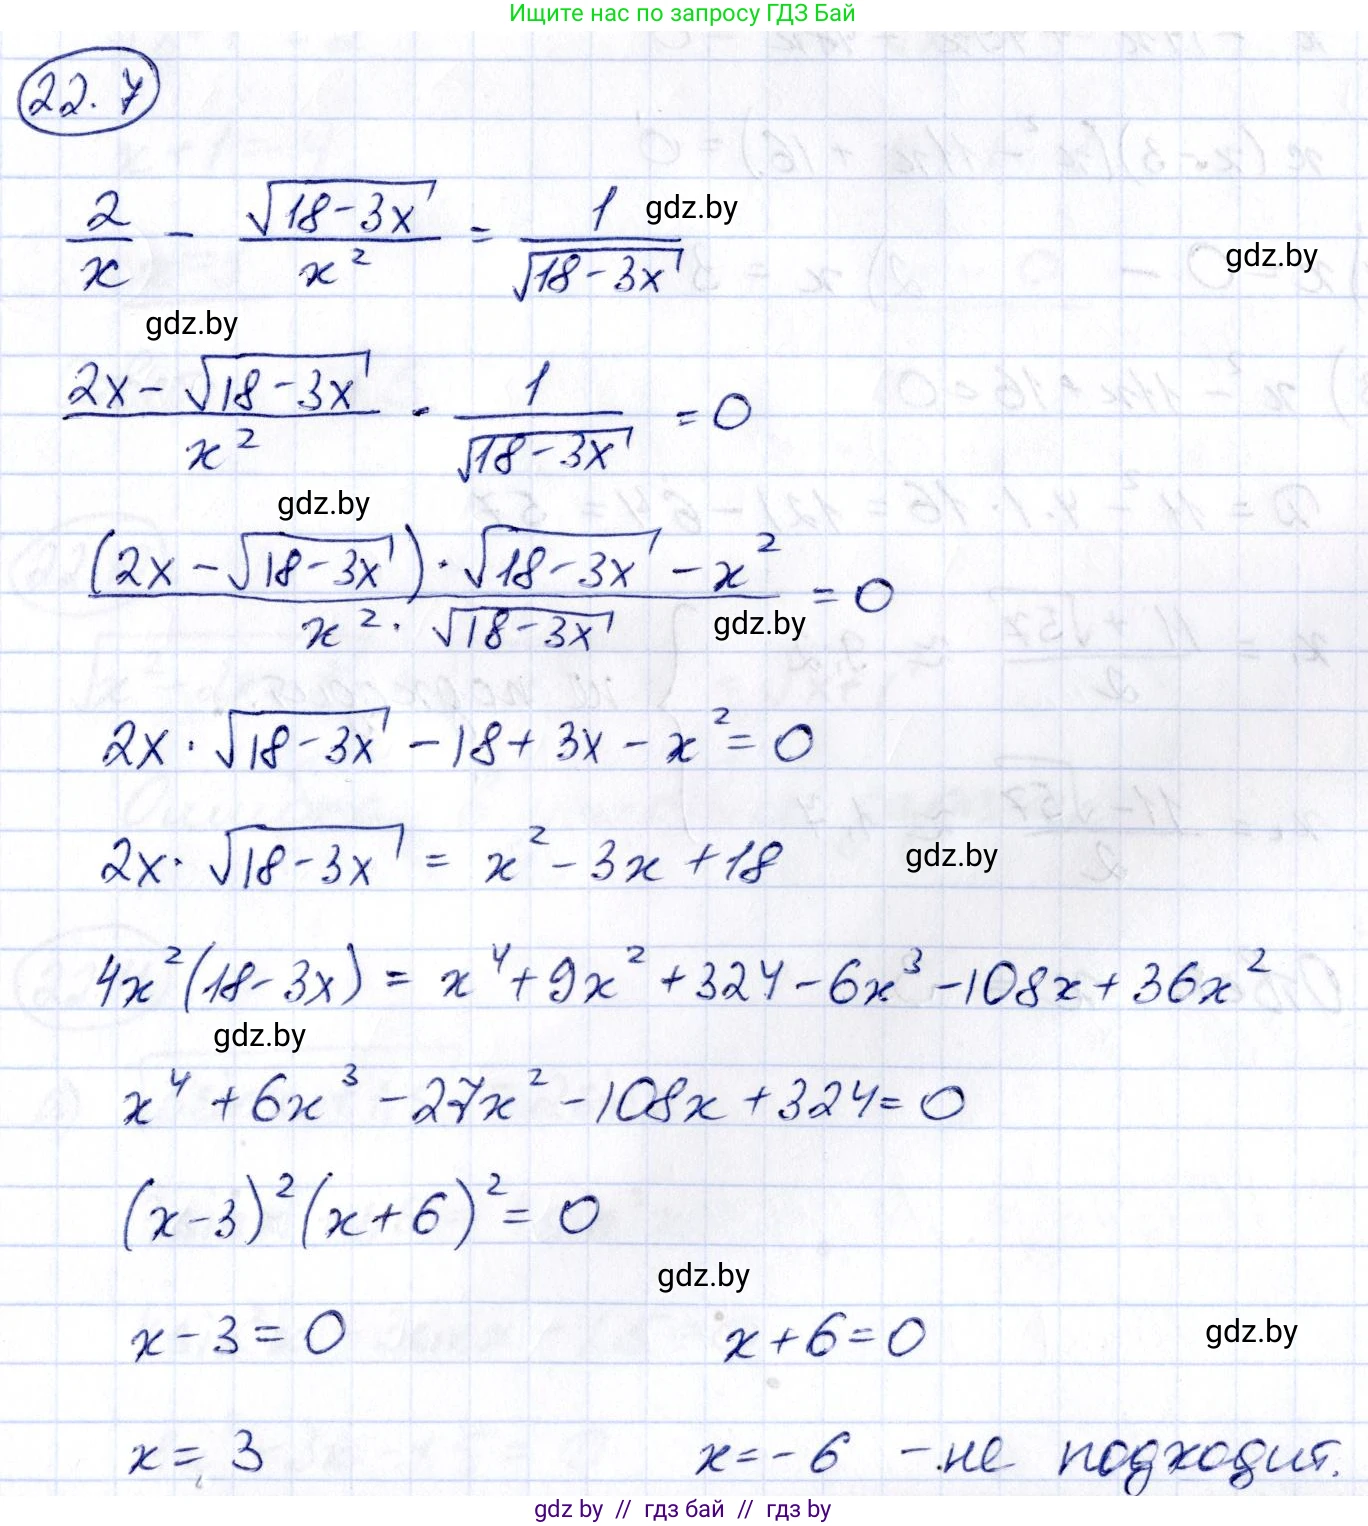 Ищите нас по запросу ГДЗ Бай
22.7
2/x - √(18-3x)/x² = 1/√(18-3x)
gdz.by
gdz.by
gdz.by
(2x-√(18-3x))/x² - 1/√(18-3x) = 0
gdz.by
((2x-√(18-3x))·√(18-3x) - x²)/(x²·√(18-3x)) = 0
gdz.by
2x·√(18-3x) - 18 + 3x - x² = 0
2x·√(18-3x) = x² - 3x + 18
gdz.by
4x²(18-3x) = x⁴ + 9x² + 324 - 6x³ - 108x + 36x²
gdz.by
x⁴ + 6x³ - 27x² - 108x + 324 = 0
(x-3)²(x+6)² = 0
gdz.by
x-3=0 x+6=0
gdz.by
x=3 x=-6 - не подходит.
gdz by // гдз бай // гдз by